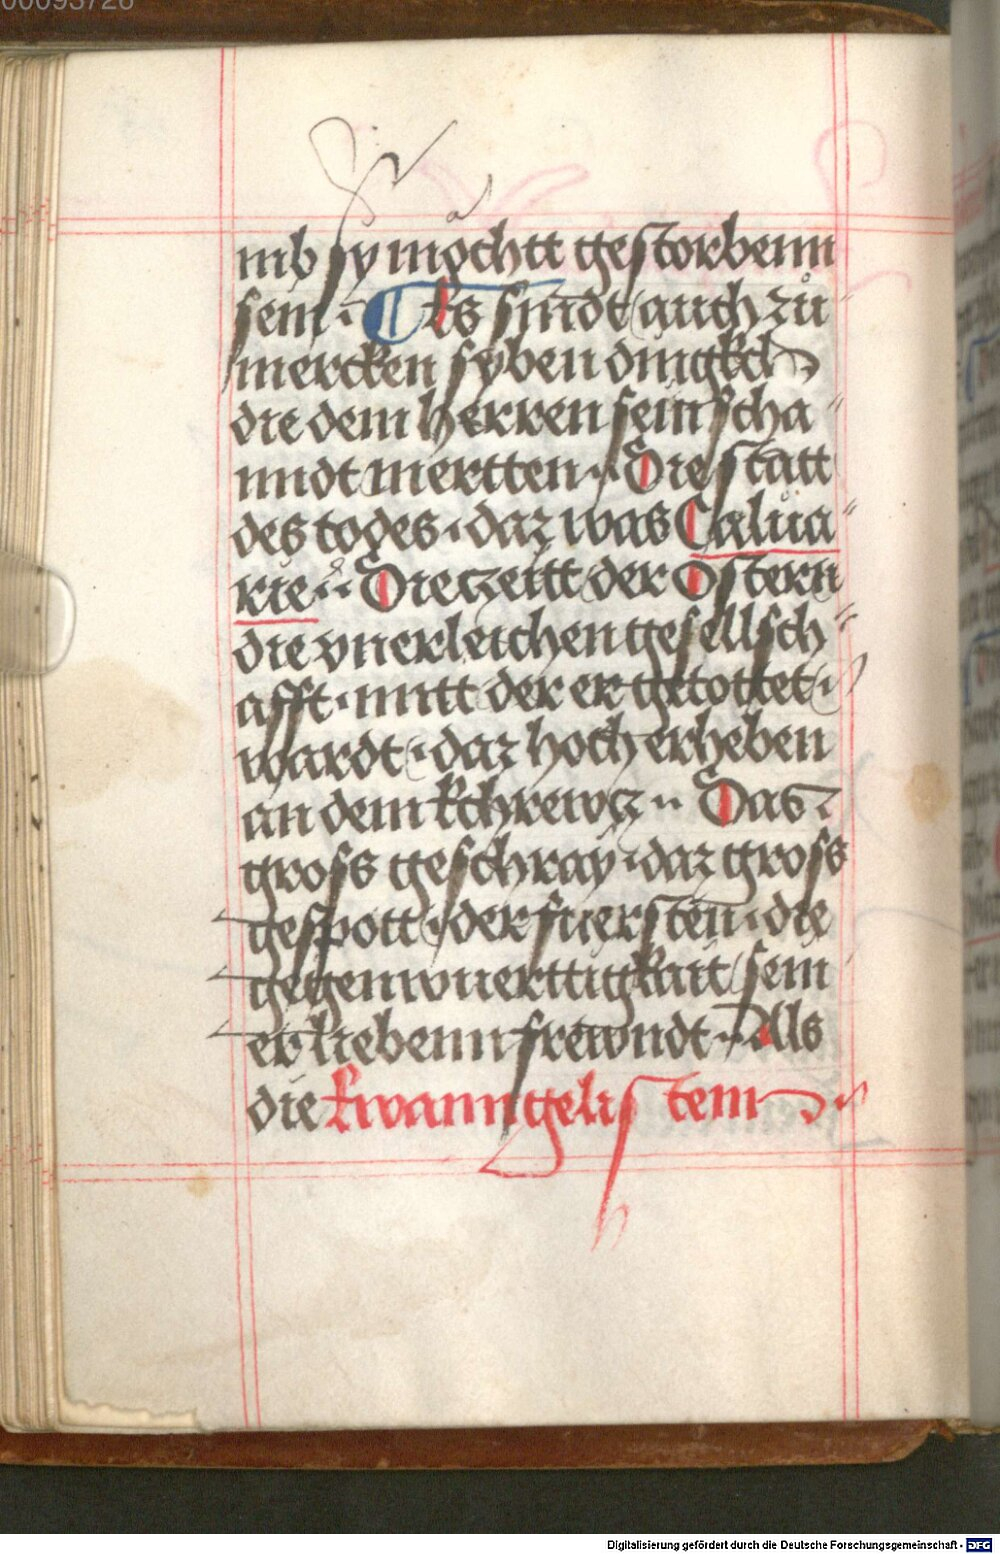 00093726
mb sy möchtt gestorbenn
sein · ¶ Es sindt auch zů
mercken syben dingkch
die dem herren sein scha
nndt mertten · Die statt
des todes · daz was Calua
rie · Die czeitt der Ostern
die vnerleichen gesellsch
afft · mitt der er getottet
wardt · daz hoch erheben
an dem kchrewcz · Das
gross geschray · daz gross
gespott · der fuersten · die
gegenwuerttigkait sein
er liebenn frewndt · Als
die Ewanngelisten
Digitalisierung gefördert durch die Deutsche Forschungsgemeinschaft - DFG